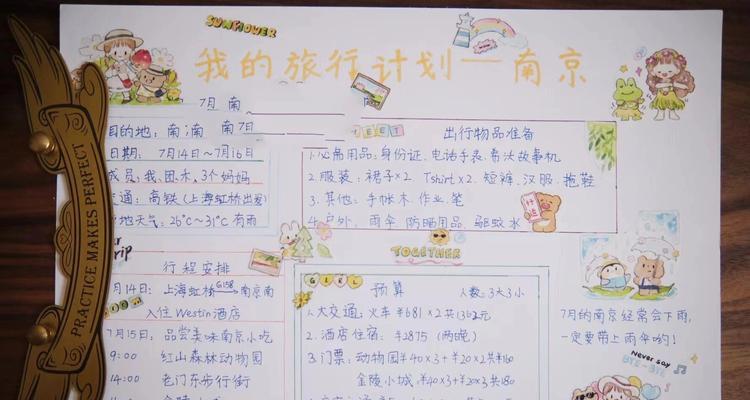 SUNFLOWER
我的旅行计划——南京
7月 南
目的地: 南 南 7日
日期: 7月14日~7月16日
成员: 我、团木、3个妈妈
交通: 高铁(上海虹桥出发)
地天气: 26℃~31℃ 有雨
出行物品准备
1. 必备用品: 身份证、电话手表、看汝故事机
2. 服装: 裙子×2 Tshirt×2、短裤、汉服、拖鞋
3. 其他: 手帐本、作业、笔
4. 户外: 雨伞 防晒用品、驱蚊水
rip
行程安排
月14日: 上海虹桥 G158 南京南
入住Westin酒店
7月15日: 品尝美味南京小吃
9:00 红山森林动物园
14:00 老门东步行街
TOGETHER
GIRL
预算 人数: 3大3小
1. 大交通: 火车 ¥681×2 共1362元
2. 酒店住宿: ¥2875 (两晚)
3. 门票: 动物园¥40×3+¥20×2 共¥160
金陵小城: ¥40×3+¥20×3 共180
7月的南京经常会下雨,
一定要带上雨伞哟!
Never say
BYE-BYE
PRACTICE MAKES PERFECT